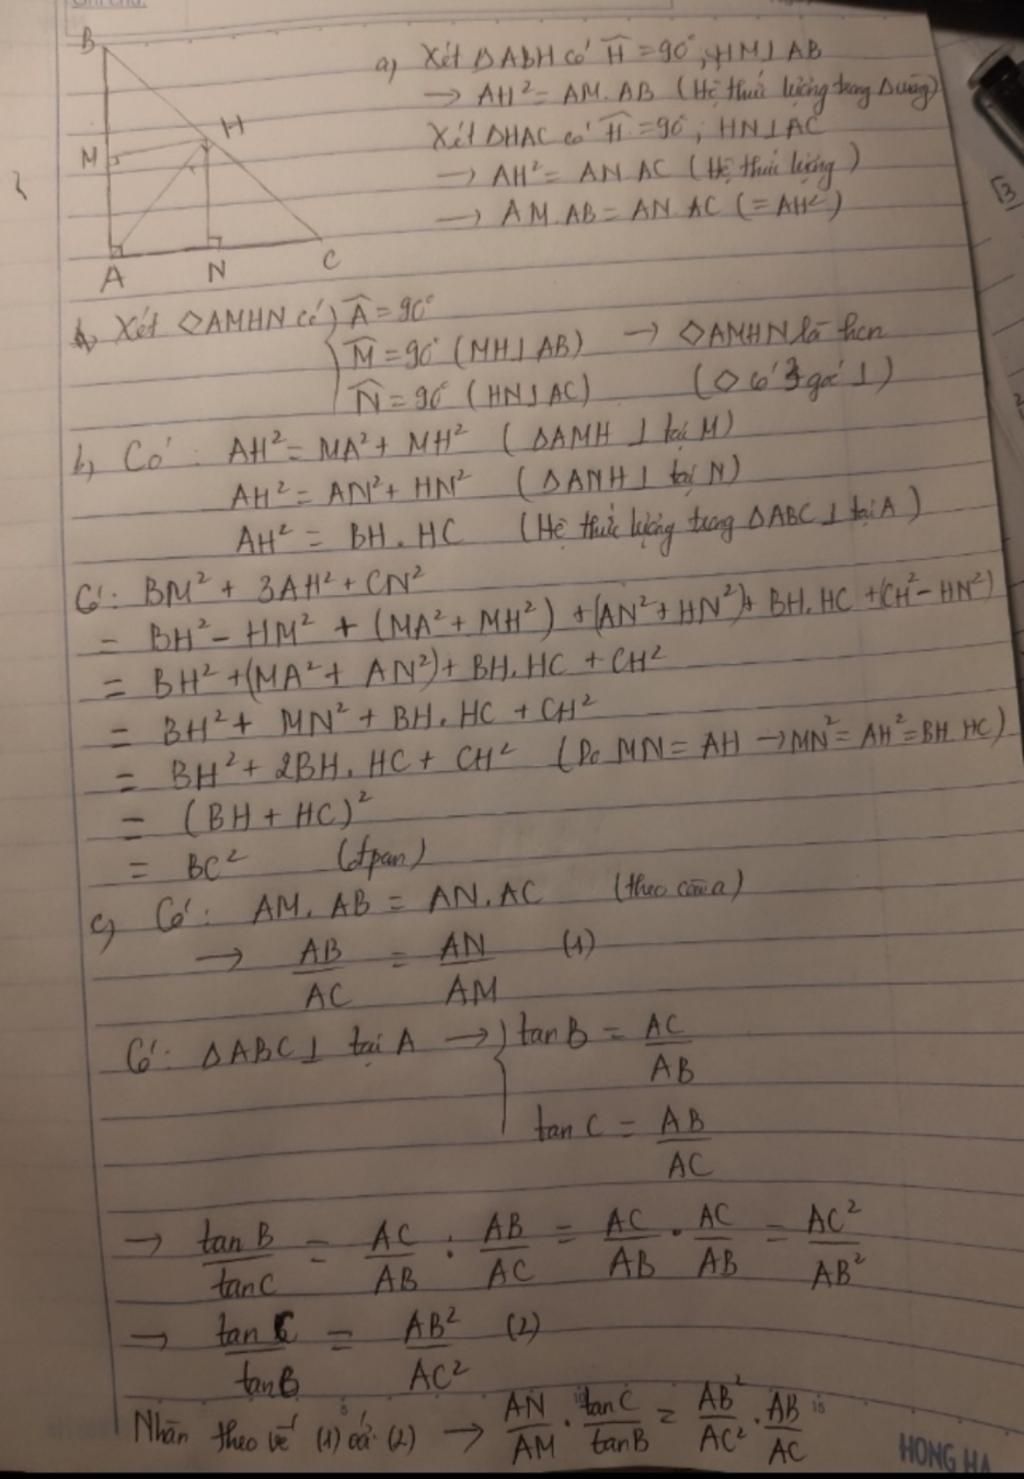 B
H
M
A
N
C
a) Xét ΔABH có Ĥ = 90°, HM⊥AB
→ AH² = AM.AB (Hệ thức lượng trong Δvuông)
Xét ΔHAC có Ĥ = 90°, HN⊥AC
→ AH² = AN.AC (Hệ thức lượng)
→ AM.AB = AN.AC (= AH²)
Xét ◇AMHN có  = 90°
M̂ = 90° (MH⊥AB) → ◇AMHN là hcn
N̂ = 90° (HN⊥AC) (◇ có 3 góc ⊥)
b, Có: AH² = MA² + MH² (ΔAMH ⊥ tại M)
AH² = AN² + HN² (ΔANH ⊥ tại N)
AH² = BH.HC (Hệ thức lượng trong ΔABC ⊥ tại A)
Có: BM² + 3AH² + CN²
= BH² - HM² + (MA² + MH²) + (AN² + HN²) + BH.HC + (CH² - HN²)
= BH² + (MA² + AN²) + BH.HC + CH²
= BH² + MN² + BH.HC + CH²
= BH² + 2BH.HC + CH² (Do MN = AH → MN² = AH² = BH.HC)
= (BH + HC)²
= BC² (đpcm)
c, Có: AM.AB = AN.AC (theo câu a)
→ AB/AC = AN/AM (1)
Có: ΔABC ⊥ tại A → tan B = AC/AB
tan C = AB/AC
→ tan B/tan C = AC/AB : AB/AC = AC/AB . AC/AB = AC²/AB²
→ tan C/tan B = AB²/AC² (2)
Nhân theo vế (1) và (2) → AN/AM . tan C/tan B = AB²/AC² . AB/AC
HONG HA